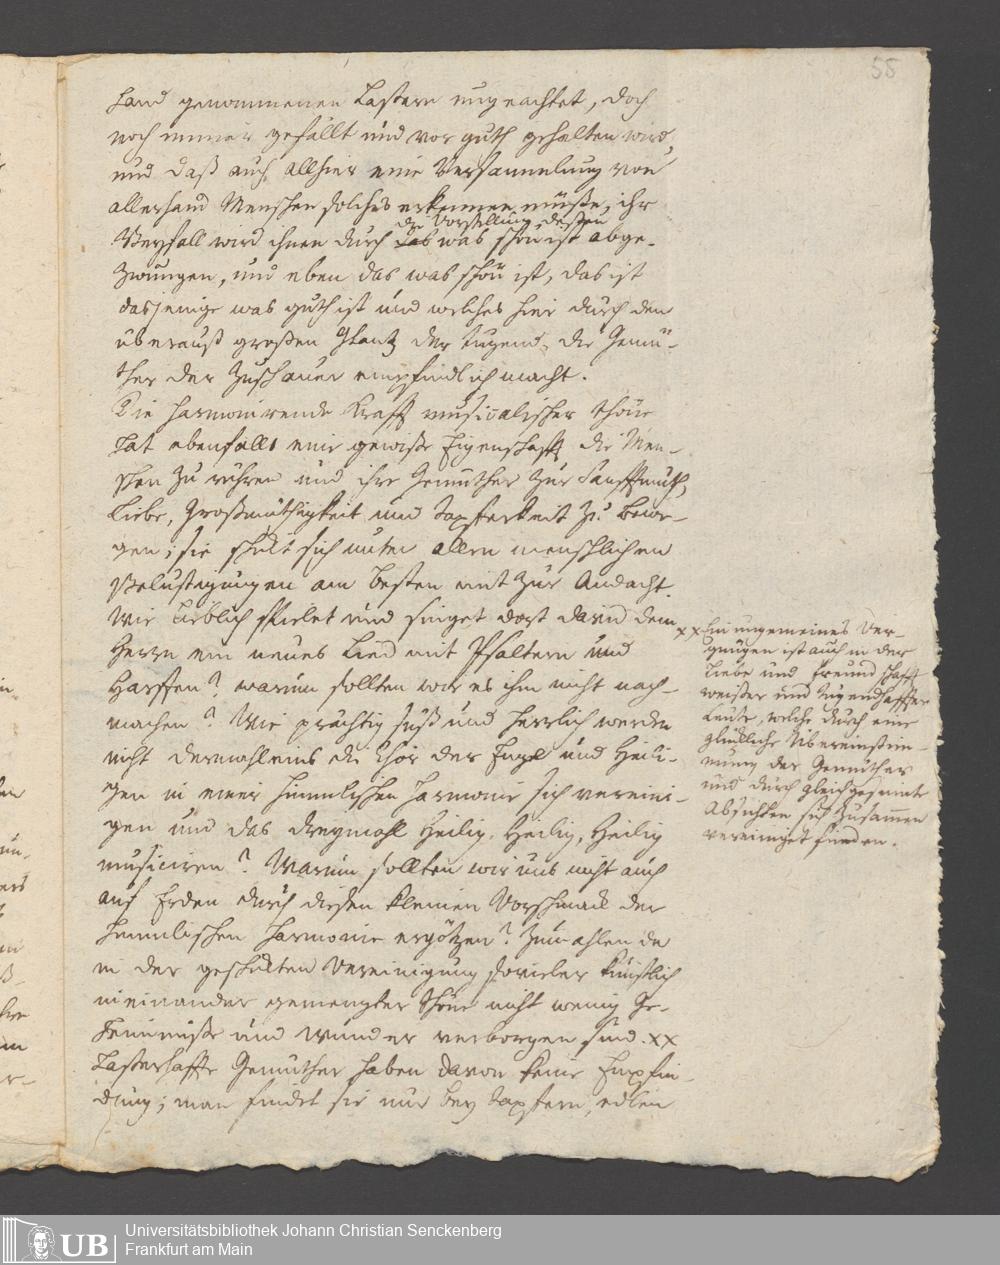 55
hand genommenen Lastern ungeachtet, doch
noch immer gefällt und vor guth gehalten wird,
und daß auch allhier eine Versammelung von
allerhand Menschen solches erkennen müße; ihr
die Vorstellung deßen
Beyfall wird ihnen durch das was schön ist abge-
zwungen, und eben das was schön ist, das ist
dasjenige was guth ist und welches hier durch den
überauß großen Glantz der Tugend, die Gemü-
ther der Zuschauer empfindlich macht.
Die harmonirende Krafft musicalischer Thöne
hat ebenfalls eine gewiße Eigenschafft die Men-
schen zu rühren und ihre Gemüther zur Sanfftmuth,
Liebe, Großmüthigkeit und Tapferkeit zu bewe-
gen; sie schickt sich unter allen menschlichen
Belustigungen am besten mit zur Andacht.
Wie lieblich spielet und singet dort David dem
Herrn ein neues Lied mit Psaltern und
Harffen? warum sollten wir es ihm nicht nach-
machen? Wie prächtig süß und herrlich werden
nicht dermahleins die Chör der Engel und Heili-
gen in einer himmlischen Harmonie sich vereini-
gen und das dreymahl Heilig, Heilig, Heilig
musiciren? Warum sollten wir uns nicht auch
auf Erden durch diesen kleinen Vorschmack der
himmlischen Harmonie ergötzen? Zumahlen da
in der geschickten Vereinigung so vieler künstlich
in einander gemengter Thöne nicht wenig Ge-
heimniße und Wunder verborgen sind. xx
Lasterhaffte Gemüther haben davon keine Empfin-
dung; man findet sie nur bey tapfern, edlen
xx Ein ungemeines Ver-
gnügen ist auch in der
Liebe und Freundschafft
weißer und tugendhaffter
Leute, welche durch eine
glückliche Übereinstim-
mung der Gemüther
und durch gleichgesinnte
Absichten sich zusammen
vereiniget finden.
UB
Universitätsbibliothek Johann Christian Senckenberg
Frankfurt am Main